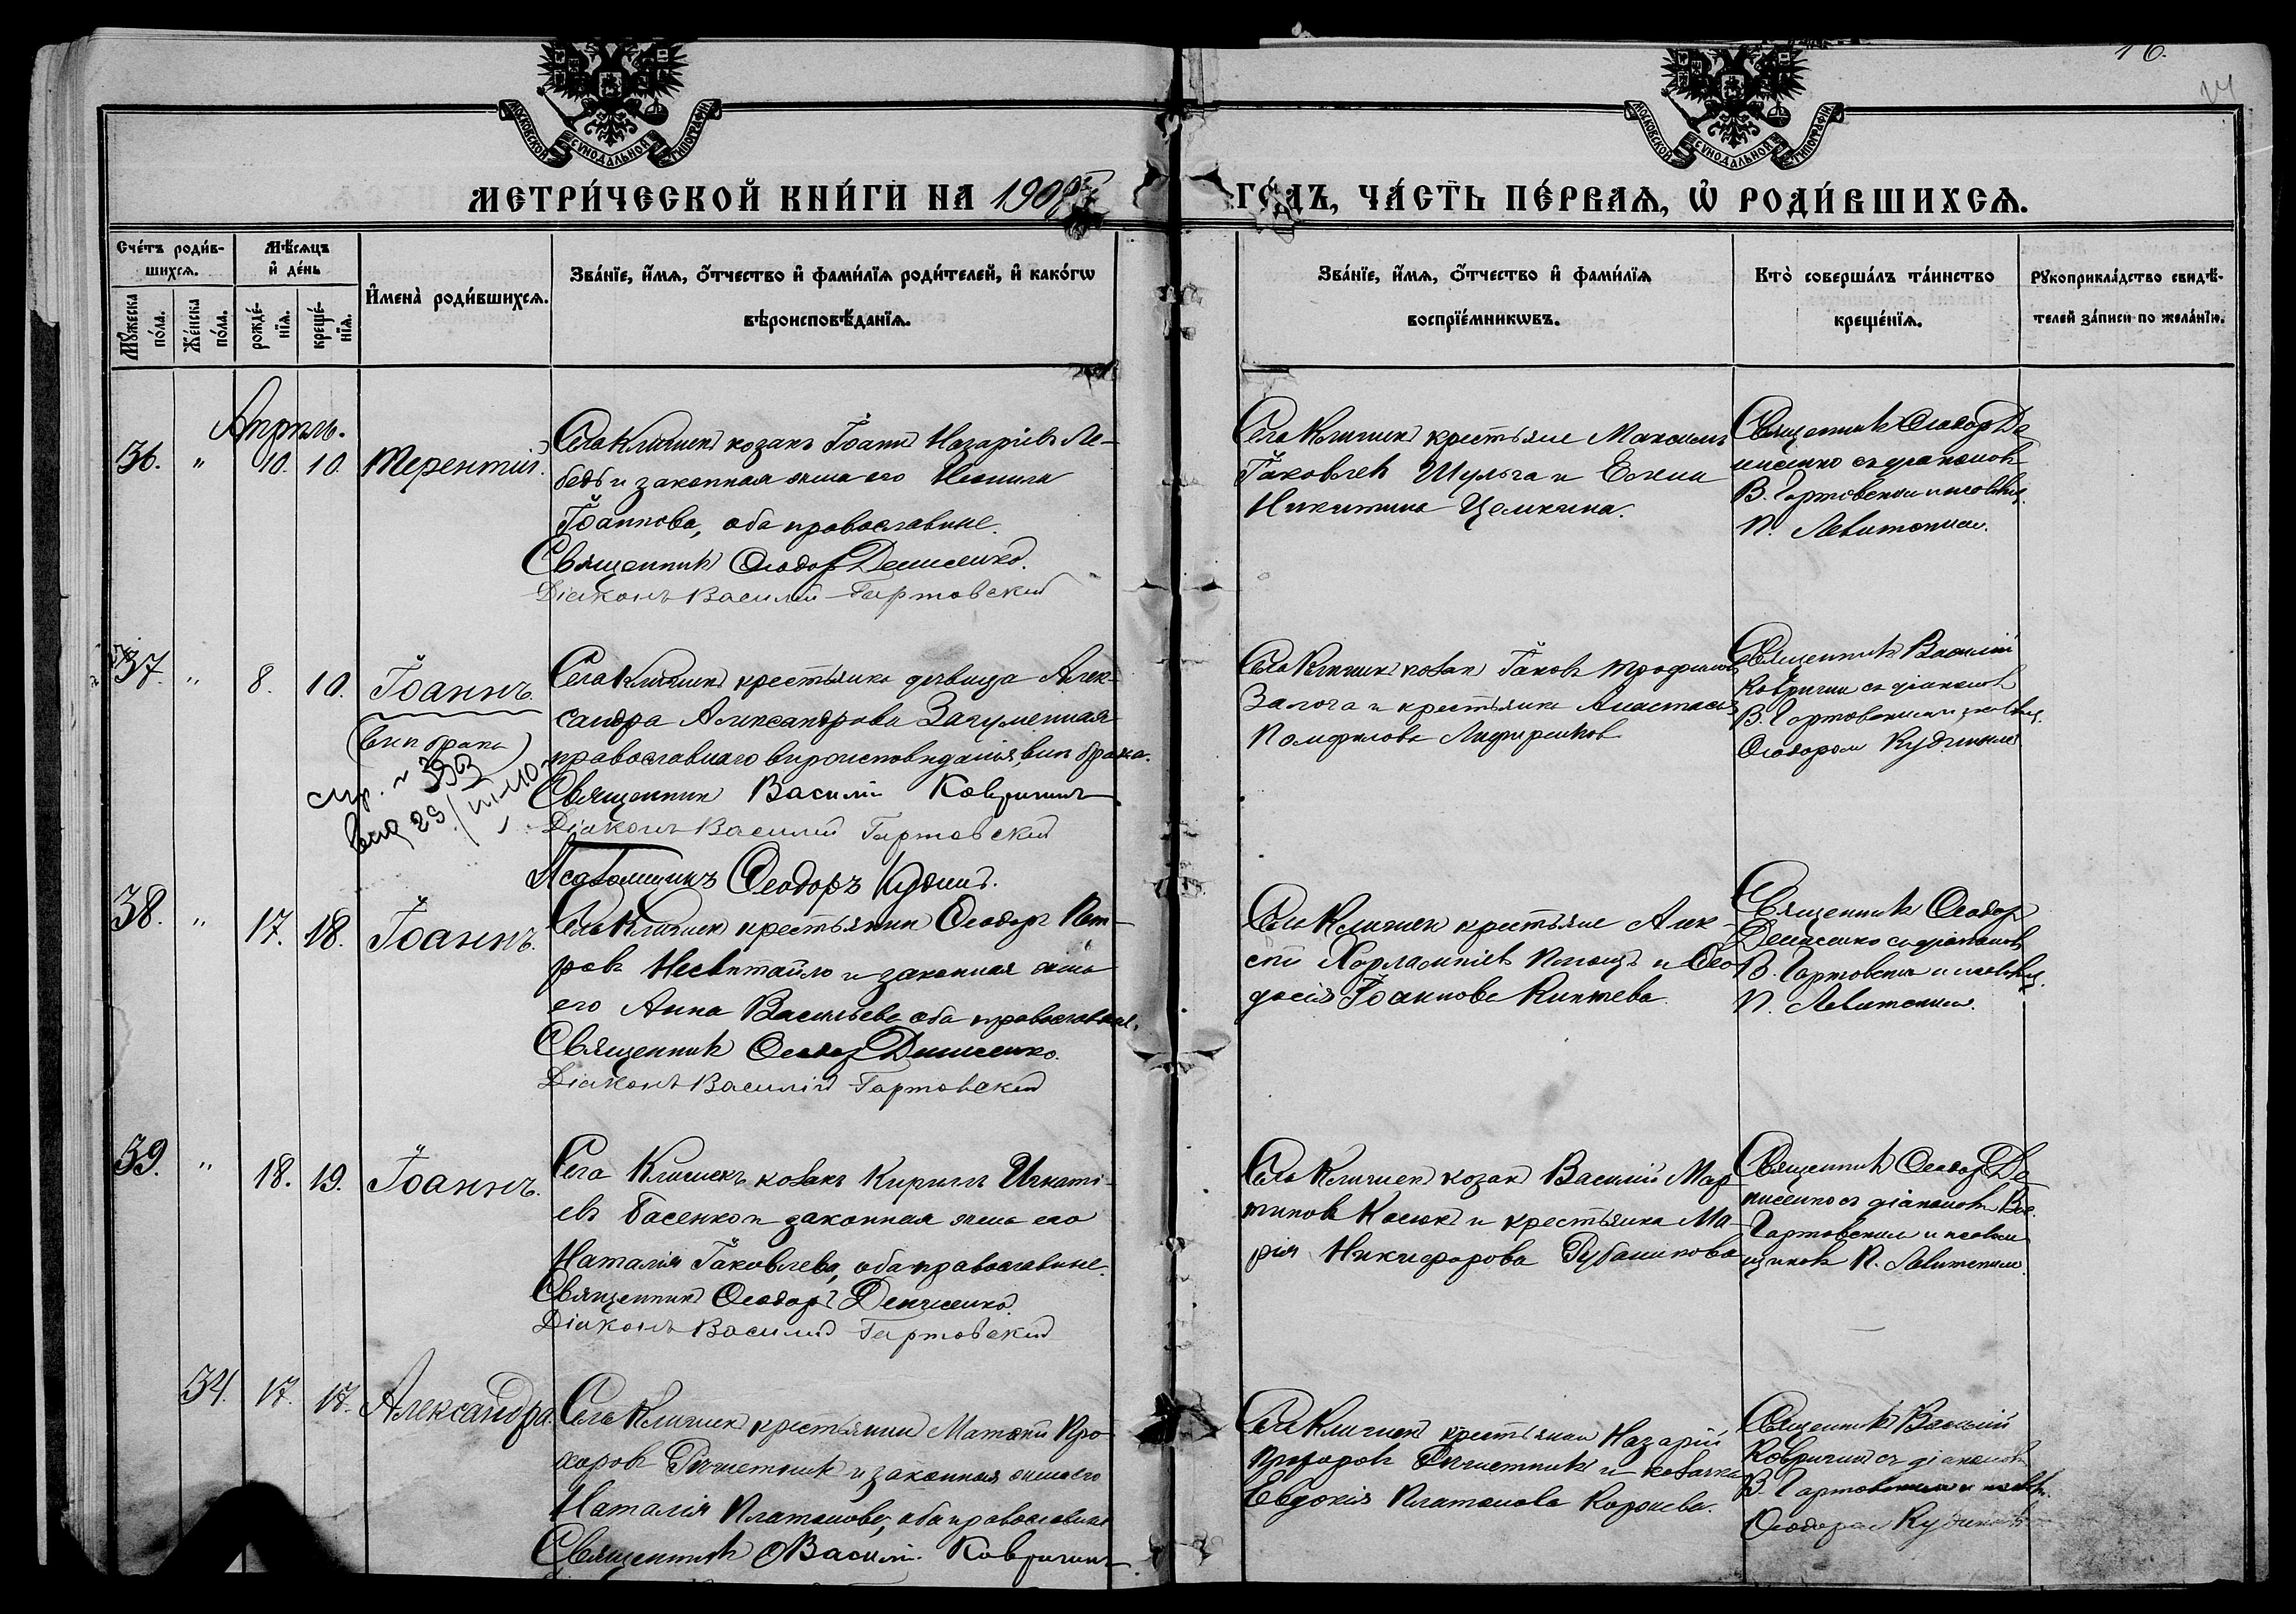 16.
МОСКОВСКОЙ СУНОДАЛЬНОЙ ТИПОГРАФІИ
МОСКОВСКОЙ СУНОДАЛЬНОЙ ТИПОГРАФІИ
МЕТРИ́ЧЕСКОЙ КНИ́ГИ НА 1908
ГО́ДЪ, ЧА́СТЬ ПЕ́РВАЯ, Ѡ РОДИ́ВШИХСЯ.
Сче́тъ роди́в-
шихся.
Мѣ́сяцъ
и де́нь
Му́жеска по́ла.
Же́нска по́ла.
рожде́-нїя.
креще́-нїя.
Имена̀ роди́вшихся.
Зва́нїе, и́мя, о́тчество и фами́лїя роди́телей, и како́гѡ
вѣроисповѣ́данїя.
Зва́нїе, и́мя, о́тчество и фами́лїя
воспрїе́мникѡвъ.
Кто̀ соверша́лъ та́инство
креще́нїя.
Рукоприкла́дство свидѣ́-
телей за́писи по жела́нїю.
Апрѣль.
36. " 10. 10. Терентій.
Села Клишекъ козакъ Іоаннъ Назаріевъ Ле-
бедь и законная жена его
Іоаннова, оба православные.
Священникъ Ѳеодоръ Денисенко.
Діаконъ Василій Гартовскій
Села Клишекъ крестьяне Максимъ
Іаковлевъ Шульга и Елена
Никитина
Священникъ Ѳеодоръ Де
нисенко съ діакономъ
В. Гартовскимъ и псаломщ.
П. Левитскимъ.
37. " 8. 10. Іоаннъ.
(внѣ брака)
Села Клишекъ крестьянка дѣвица Алек-
сандра Александрова Загуменная
православнаго вѣроисповѣданія, внѣ брака.
Священникъ Василій Ковригинъ
Діаконъ Василій Гартовскій
Псаломщикъ Ѳеодоръ Кудинъ.
Села Клишекъ козакъ Іаковъ Трофимовъ
Залога и крестьянка Анастасія
Памфилова
Священникъ Василій
Ковригинъ съ діакономъ
В. Гартовскимъ и псаломщ.
Ѳеодоромъ Кудинымъ
38. " 17. 18. Іоаннъ.
Села Клишекъ крестьянинъ Ѳеодоръ Пет-
ровъ Несвитайло и законная жена
его Анна Васильева, оба православные.
Священникъ Ѳеодоръ Денисенко.
Діаконъ Василій Гартовскій
Села Клишекъ крестьяне Алек-
сѣй Харлампіевъ и Ѳео
досія Іоаннова Киптева.
Священникъ Ѳеодоръ
Денисенко съ діакономъ
В. Гартовскимъ и псаломщ.
П. Левитскимъ.
39. " 18. 19. Іоаннъ.
Села Клишекъ козакъ Кириллъ Игнаті-
евъ Басенко и законная жена его
Наталія Іаковлева, оба православные.
Священникъ Ѳеодоръ Денисенко.
Діаконъ Василій Гартовскій
Села Клишекъ козакъ Василій Мар
тиновъ Касюкъ и крестьянка Ма-
рія Никифорова Рубашнова
Священникъ Ѳеодоръ Де
нисенко съ діакономъ Вас.
Гартовскимъ и псалом
щикомъ П. Левитскимъ.
34. 17. 17. Александра.
Села Клишекъ крестьянинъ Матѳей Про
хоровъ и законная жена его
Наталія Платонова, оба православные
Священникъ Василій Ковригинъ
Села Клишекъ крестьянинъ Назарій
Прохоровъ и козачка
Евдокія Платонова Корнева.
Священникъ Василій
Ковригинъ съ діакономъ
В. Гартовскимъ и псаломщ.
Ѳеодоромъ Кудинымъ